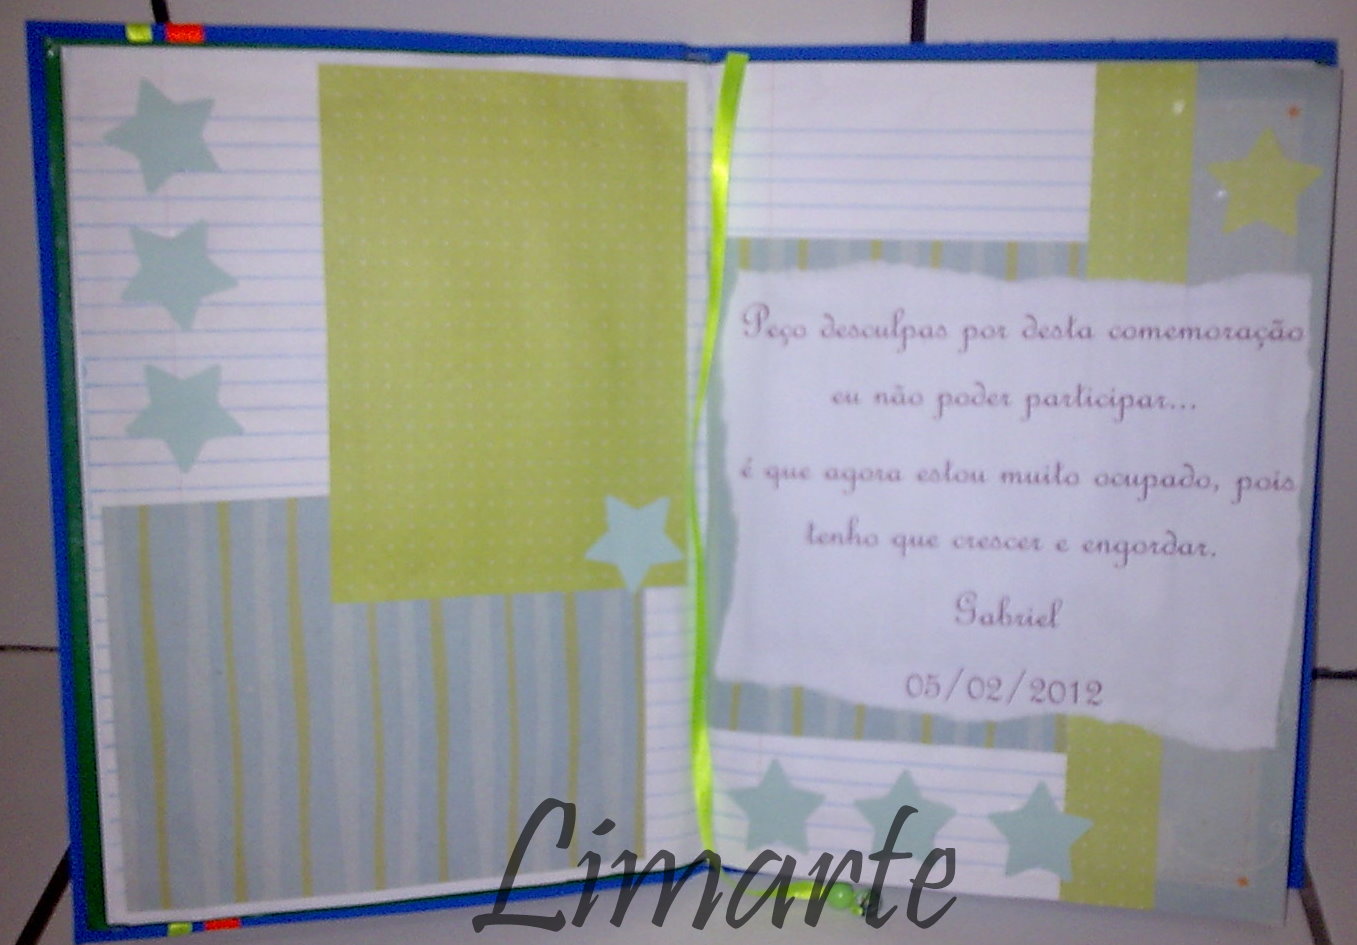 Peço desculpas por desta comemoração
eu não poder participar...
é que agora estou muito ocupado, pois
tenho que crescer e engordar.
Gabriel
05/02/2012
Limarte